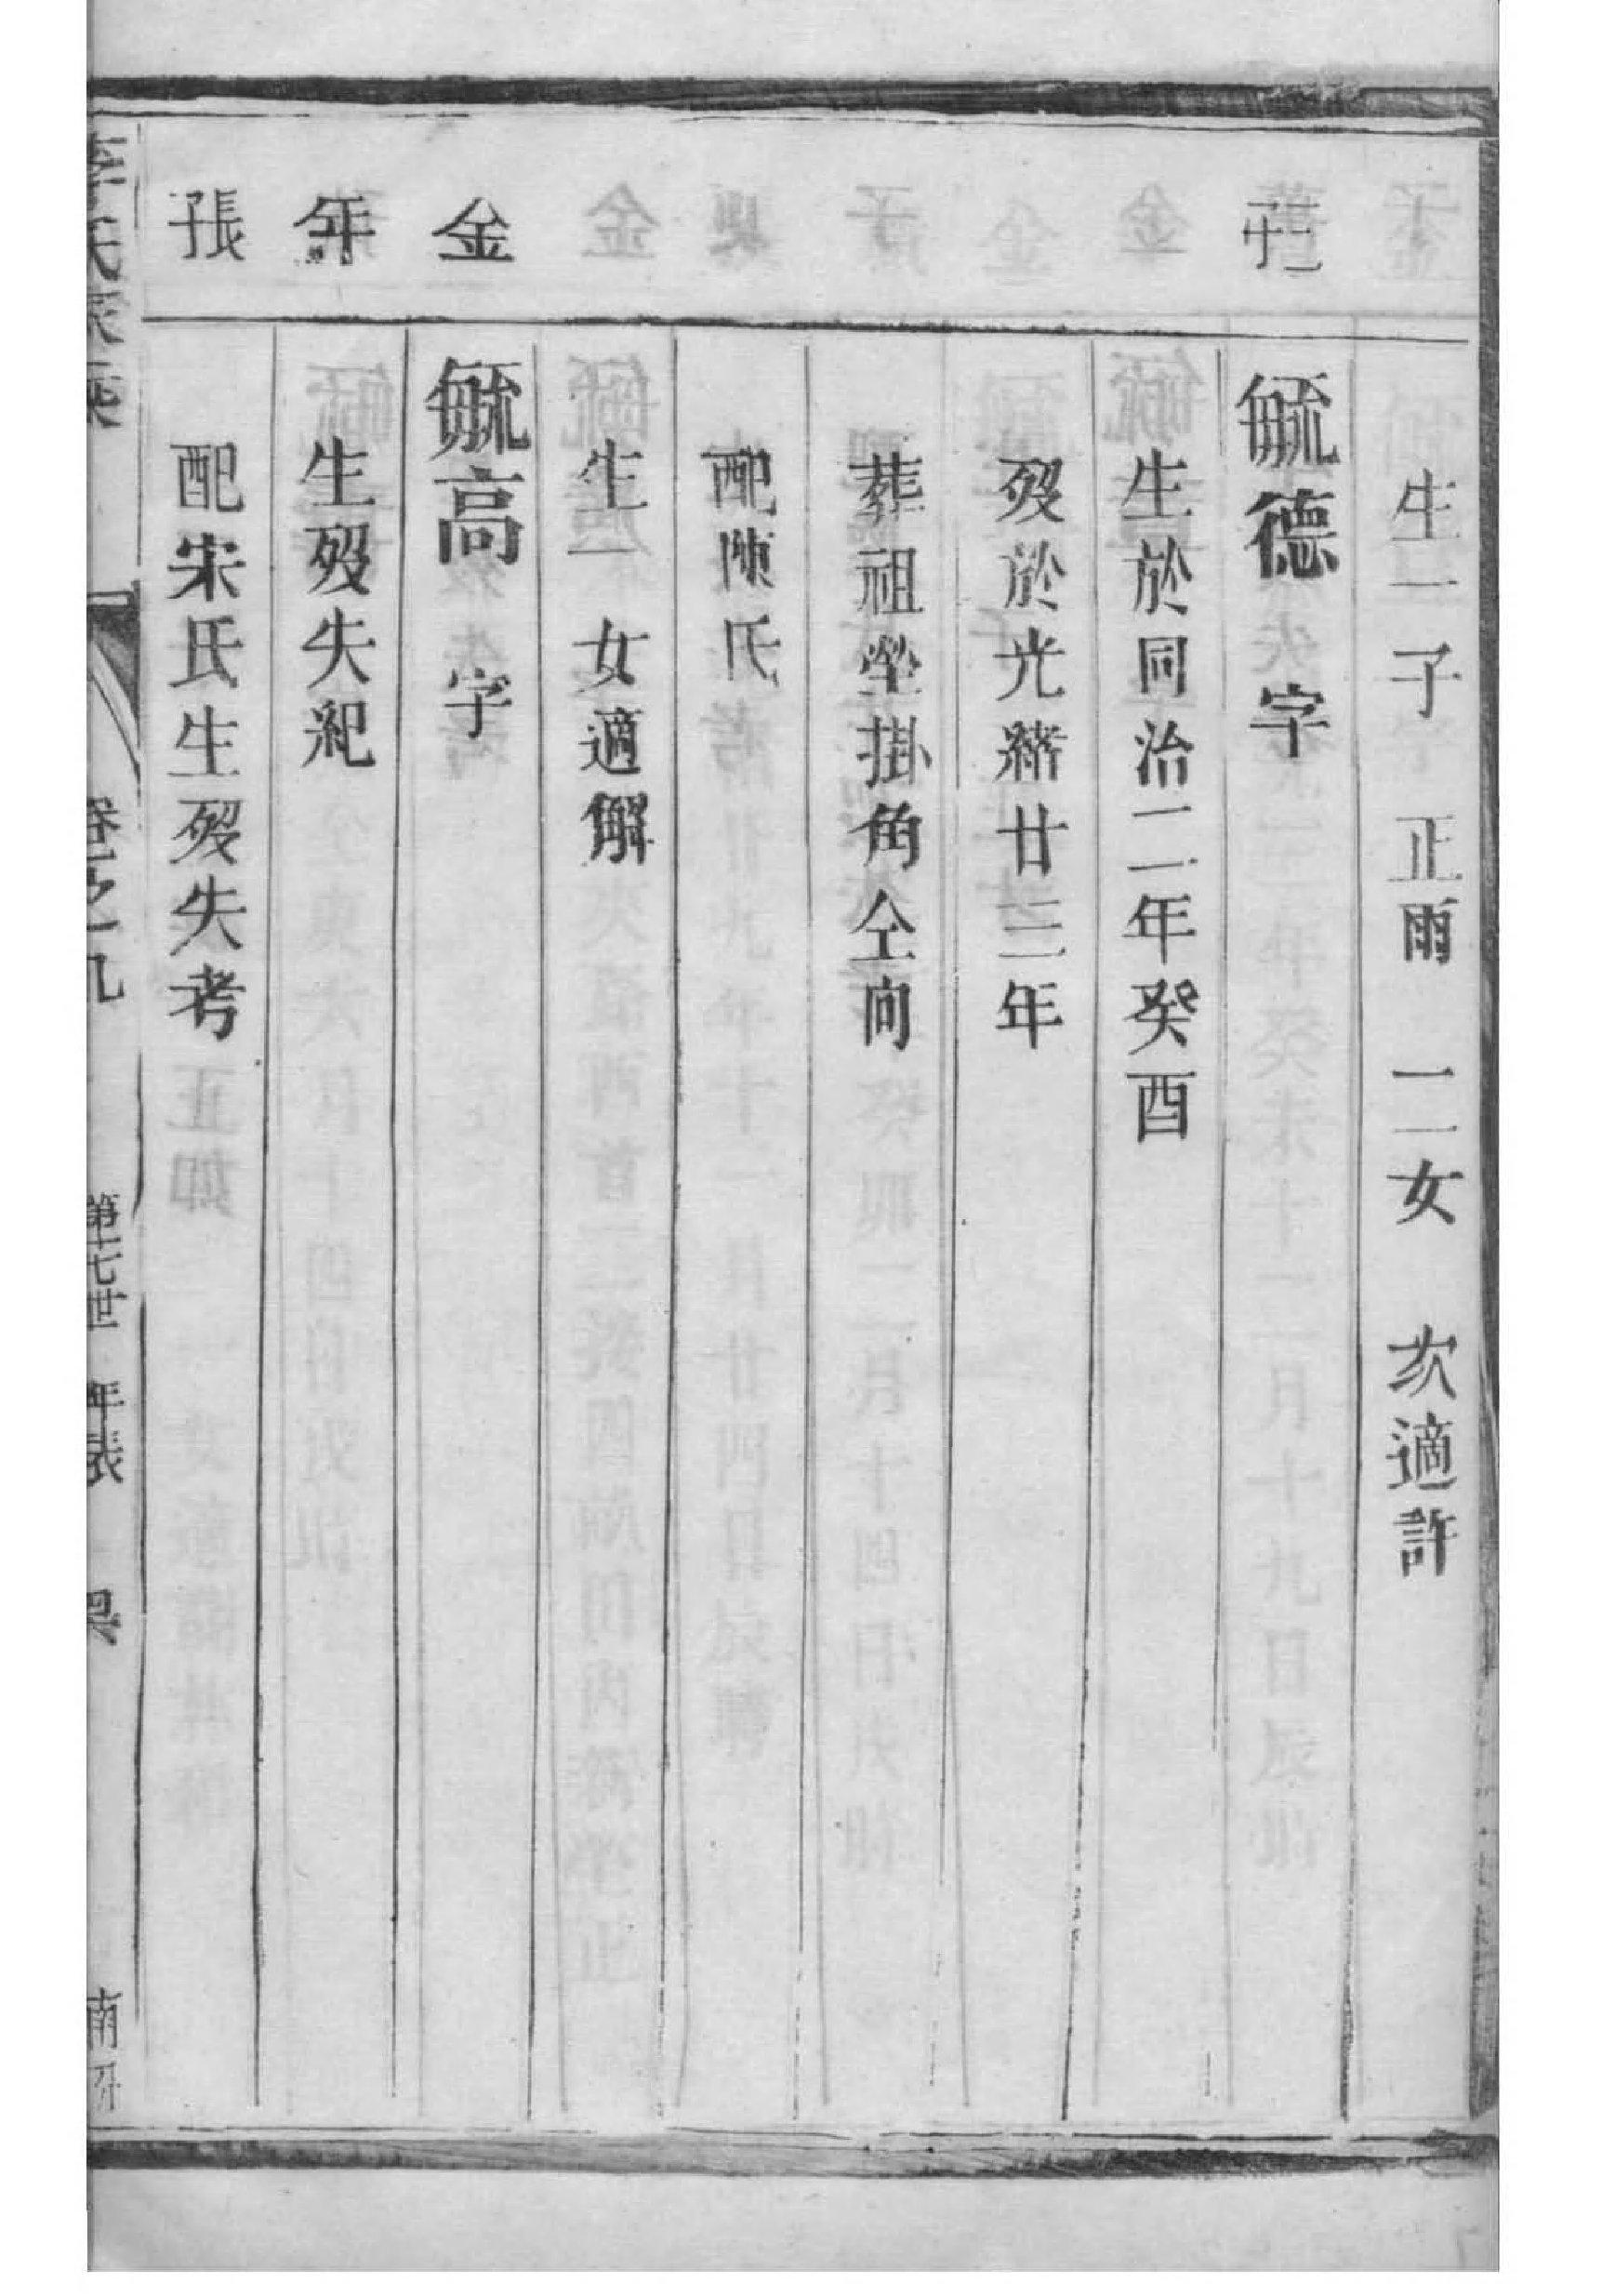 生一子 正雨 二女 次適許
毓德 字
生於同治二年癸酉
歿於光緒廿三年
葬祖塋掛角仝向
配陳氏
生一女適解
金
毓高 字
生歿失紀
張
配宋氏生歿失考
李氏家乘 卷之九 第十七世 年表